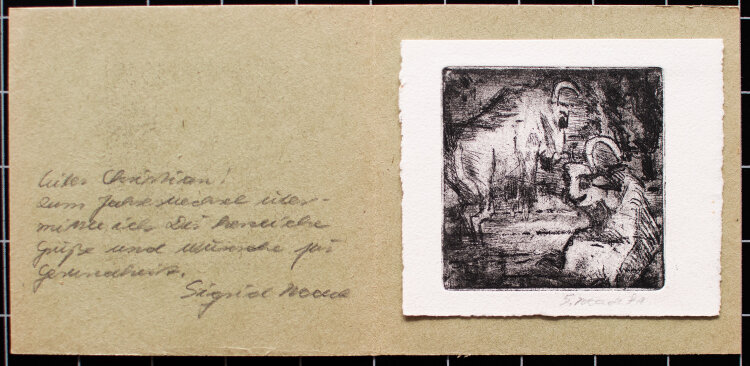 Lieber Christian!
zum Jahreswechsel über-
mittle ich Dir herzliche
Grüße und Wünsche für
Gesundheit.
Sigrid Noack
S. Noack